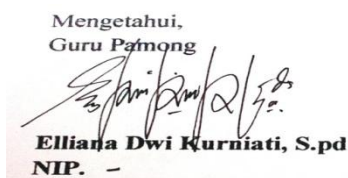 Mengetahui,
Guru Pamong
Elliana Dwi Kurniati, S.pd
NIP. -